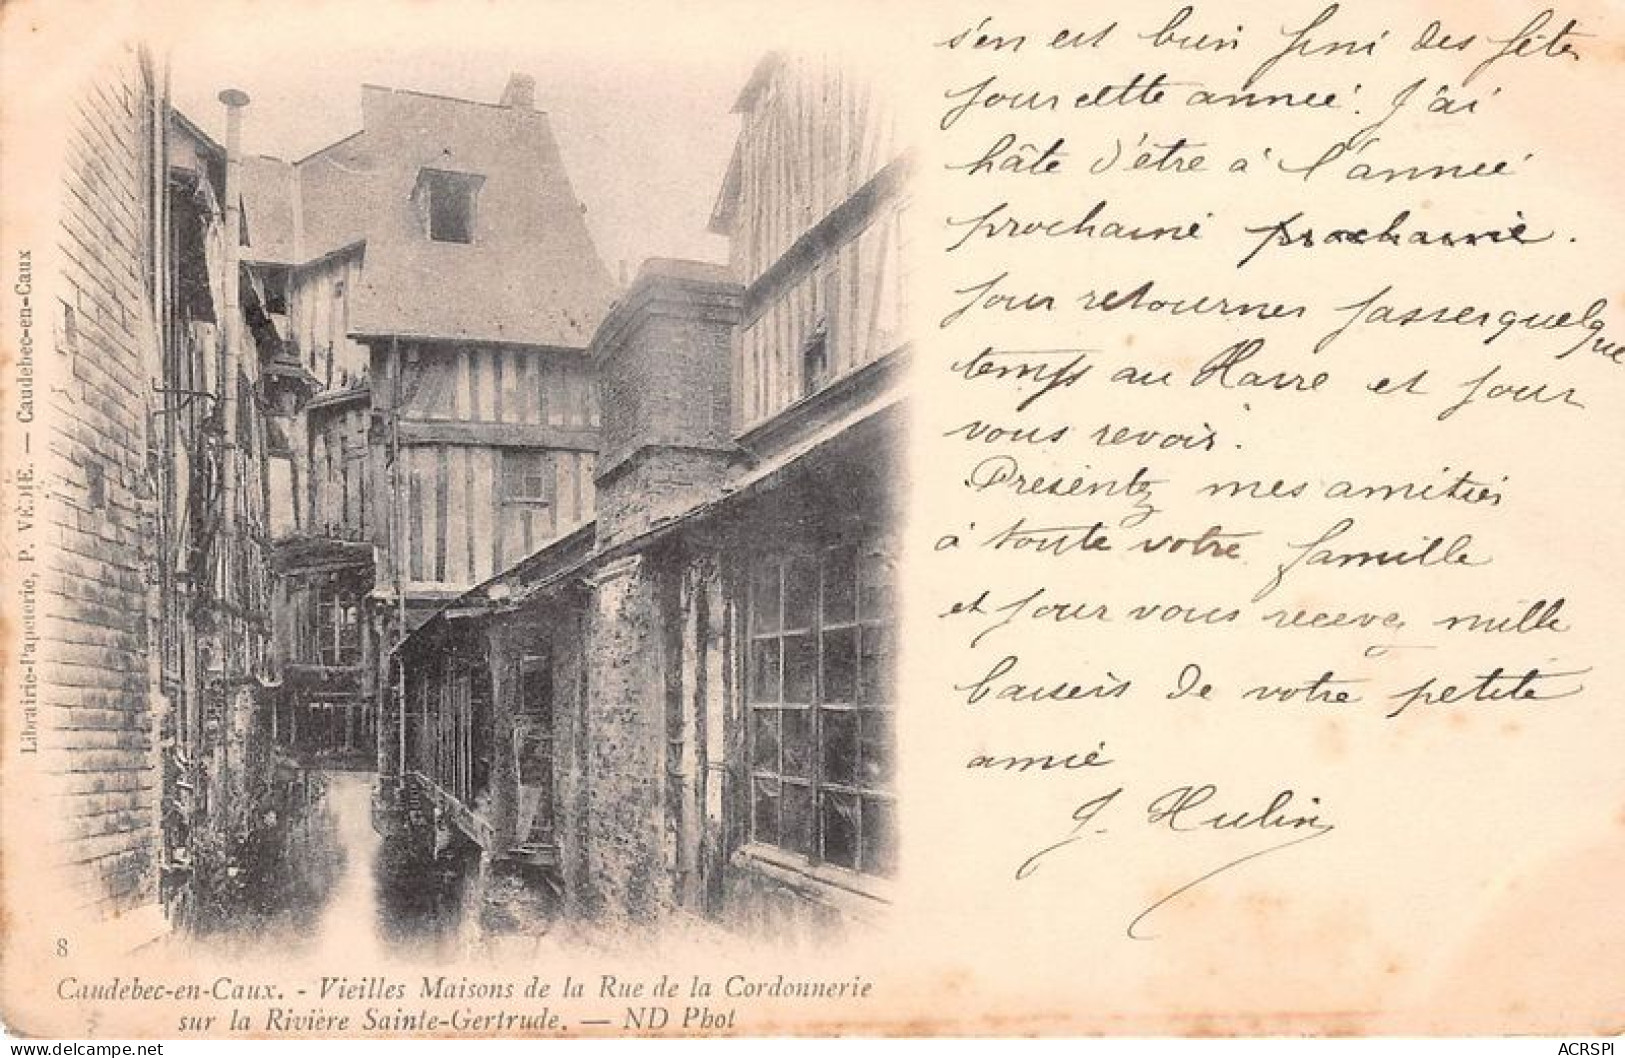 s'en est bien fini des fêtes
pour cette année. J'ai
hâte d'être à l'année
prochaine prochaine.
pour retourner passer quelque
temps au Havre et pour
vous revoir.
Présentez mes amitiés
à toute votre famille
et pour vous recevez mille
baisers de votre petite
amie
J. Hulin
Librairie-Papeterie, P. VÉDIÉ. — Caudebec-en-Caux
8
Caudebec-en-Caux. - Vieilles Maisons de la Rue de la Cordonnerie
sur la Rivière Sainte-Gertrude. — ND Phot
ACRSPI
delcampe.net